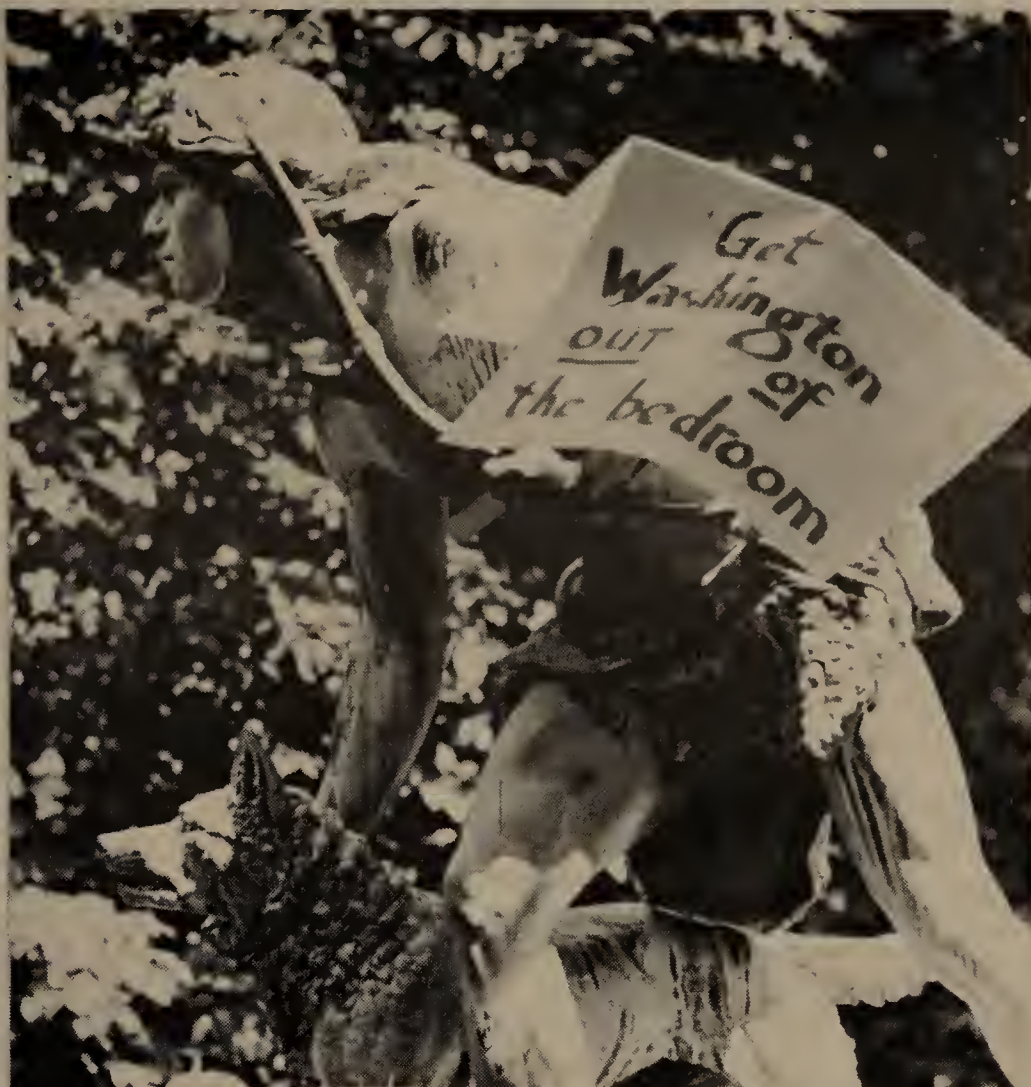 Get
Washington
OUT of
the bedroom